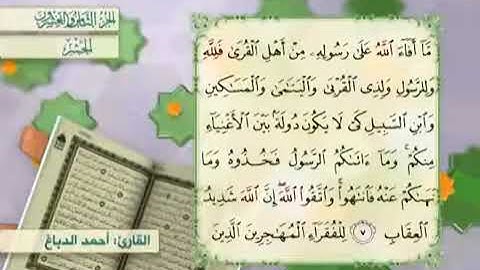 الجزء الثامن والعشرون
الحشر
مَّا أَفَاءَ اللَّهُ عَلَىٰ رَسُولِهِ مِنْ أَهْلِ الْقُرَىٰ فَلِلَّهِ
وَلِلرَّسُولِ وَلِذِي الْقُرْبَىٰ وَالْيَتَامَىٰ وَالْمَسَاكِينِ
وَابْنِ السَّبِيلِ كَىْ لَا يَكُونَ دُولَةً بَيْنَ الْأَغْنِيَاءِ
مِنكُمْ ۚ وَمَا ءَاتَىٰكُمُ الرَّسُولُ فَخُذُوهُ وَمَا
نَهَىٰكُمْ عَنْهُ فَانتَهُوا۟ ۚ وَاتَّقُوا۟ اللَّهَ ۖ إِنَّ اللَّهَ شَدِيدُ
الْعِقَابِ ٧ لِلْفُقَرَاءِ الْمُهَٰجِرِينَ الَّذِينَ
القارئ: أحمد الدباغ